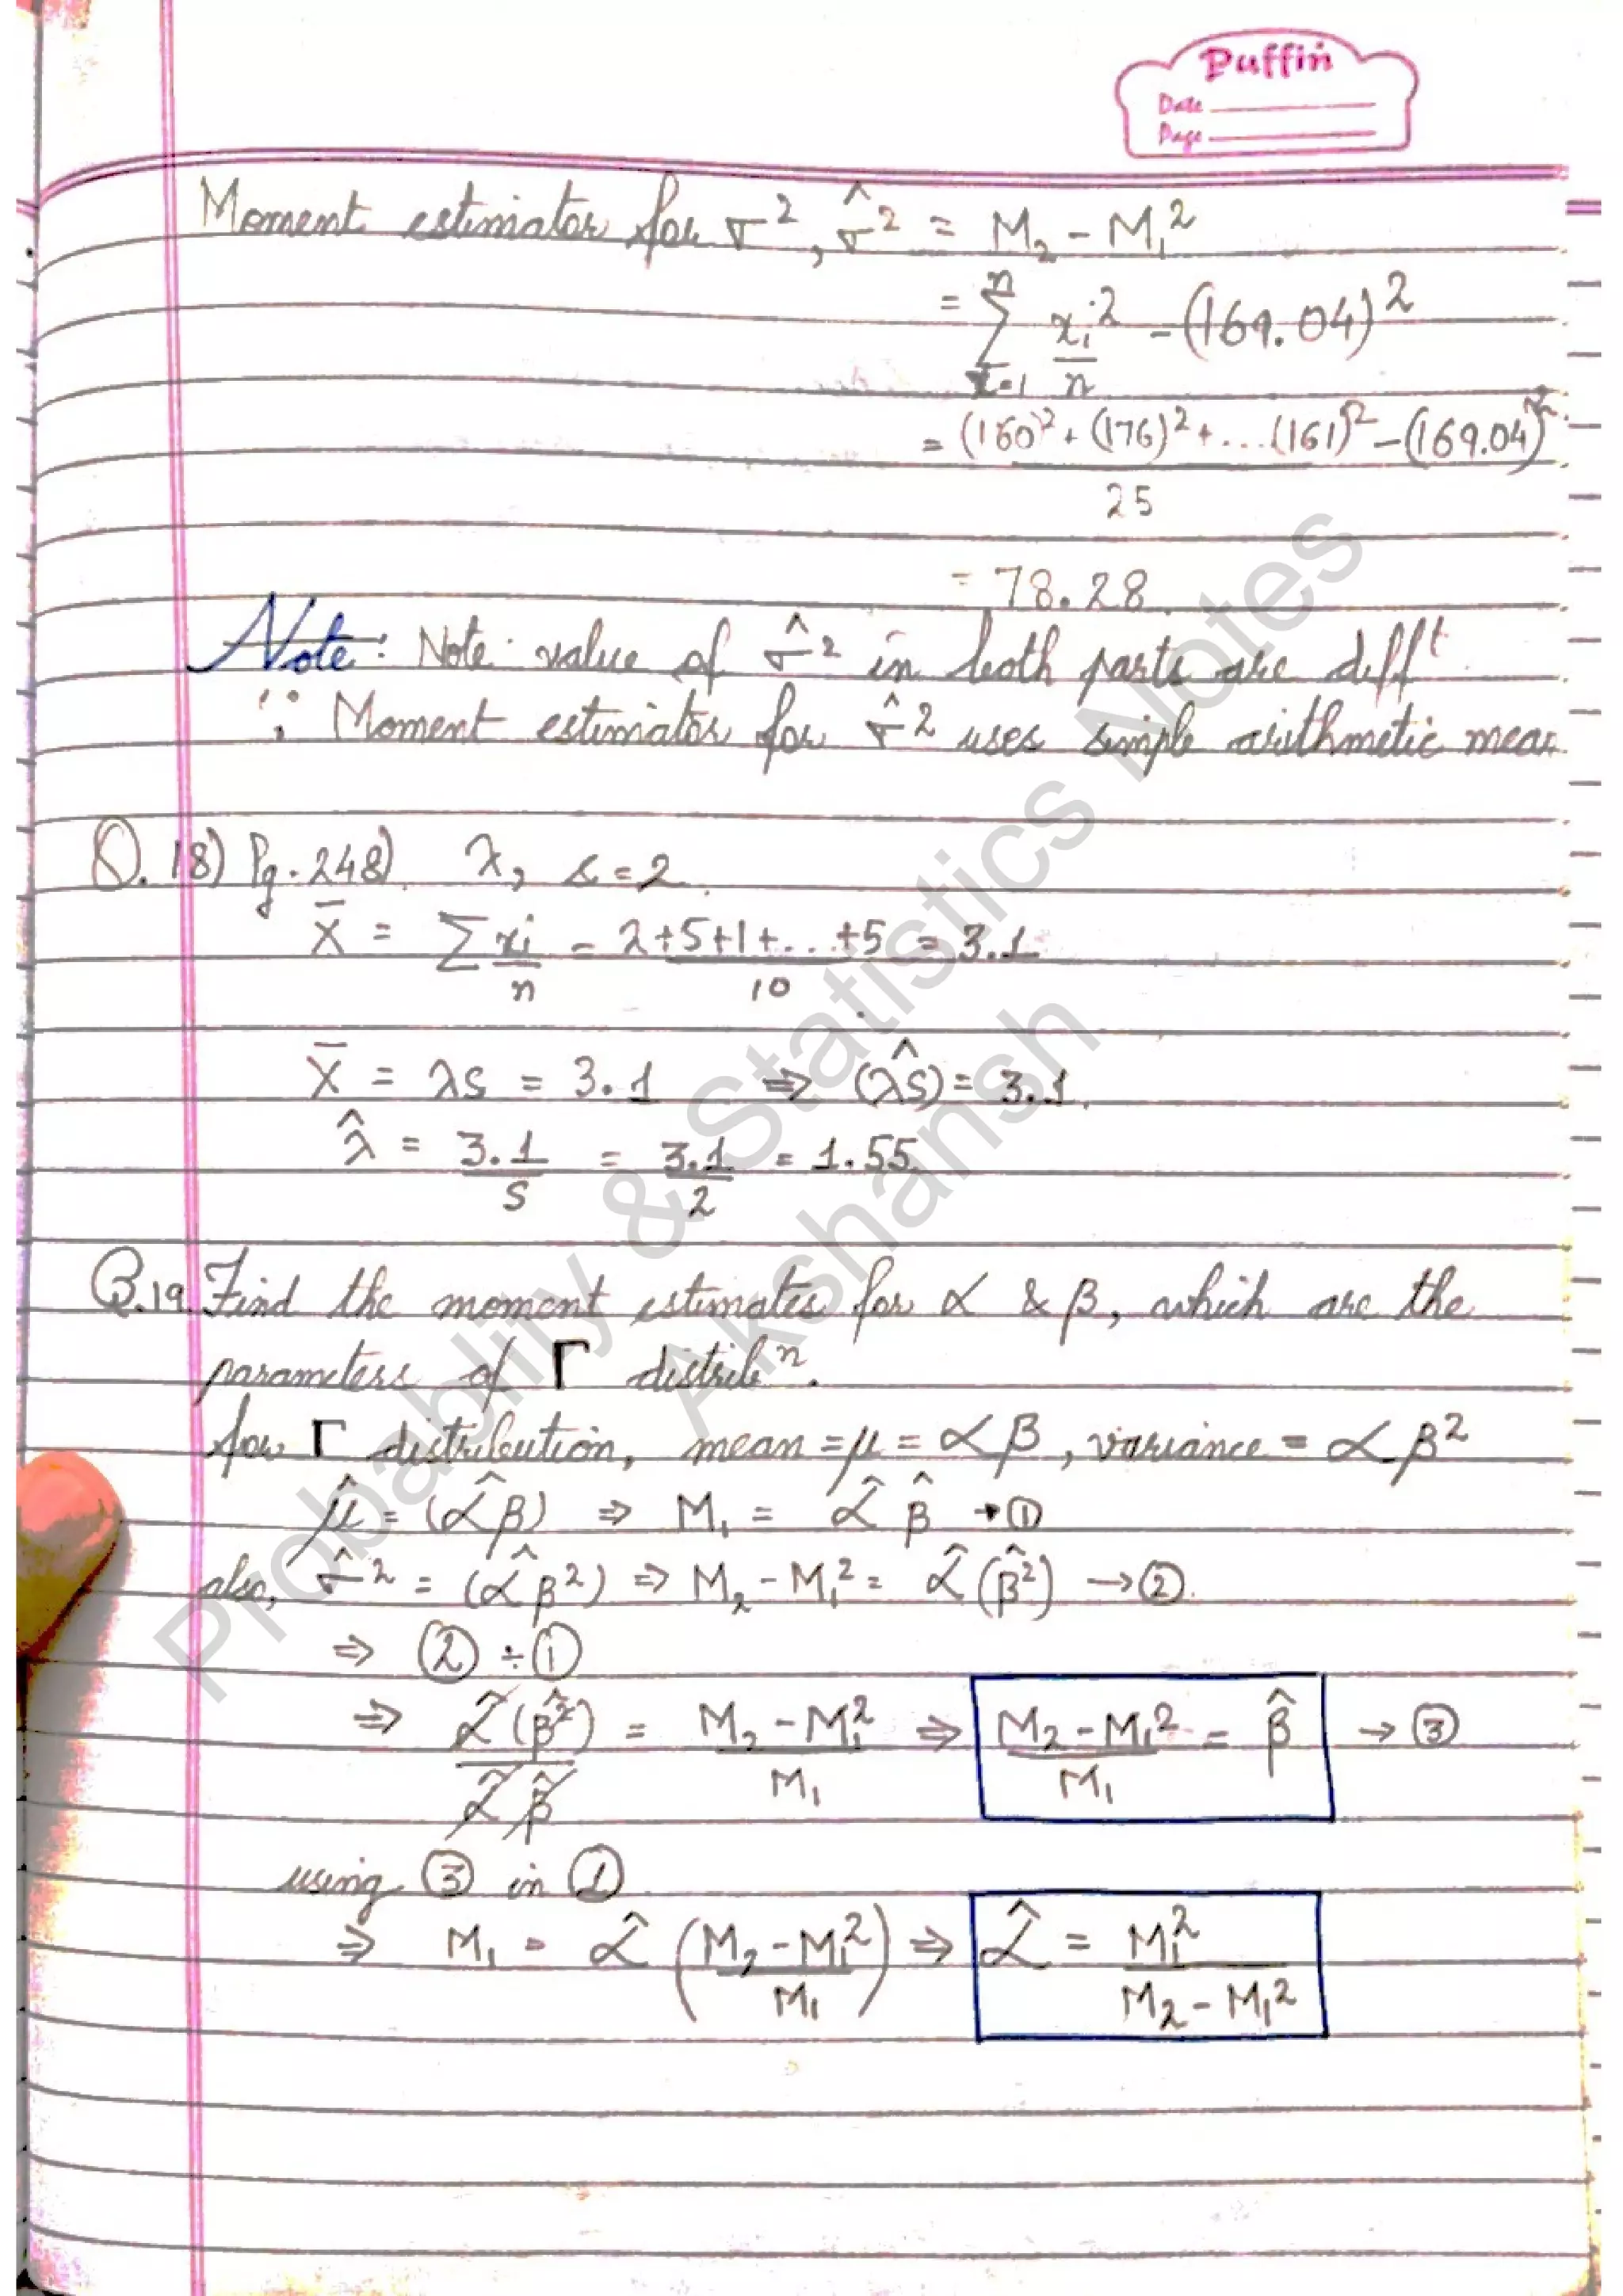 Puffin
Date
Page
Moment estimator for σ², σ̂² = M₂ - M₁²
= n Σ i=1 xᵢ²/n - (169.04)²
= (160)² + (176)² + ... (161)² - (169.04)²
25
= 78.28
Note: Note value of σ̂² in both parts are diffᵗ
∵ Moment estimator for σ̂² uses simple arithmetic mean
Q.18) Pg.248) λ, s=2.
X̄ = Σ xᵢ/n = 2+5+1+...+5/10 = 3.1
X̄ = λs = 3.1 ⇒ (λ̂s) = 3.1
λ̂ = 3.1/s = 3.1/2 = 1.55
Q.19 Find the moment estimates for α & β, which are the
parameters of Γ distribⁿ.
for Γ distribution, mean = μ = αβ, variance = αβ²
μ̂ = (α̂β) ⇒ M₁ = α̂ β̂ → ①
also, σ̂² = (α̂β²) ⇒ M₂ - M₁² = α̂(β̂²) → ②
⇒ ② ÷ ①
⇒ α̂(β̂²)/α̂β̂ = M₂ - M₁²/M₁ ⇒ M₂ - M₁²/M₁ = β̂ → ③
using ③ in ①
⇒ M₁ = α̂ (M₂ - M₁²/M₁) ⇒ α̂ = M₁²/M₂ - M₁²
Probablity & Statistics Notes
Akshansh